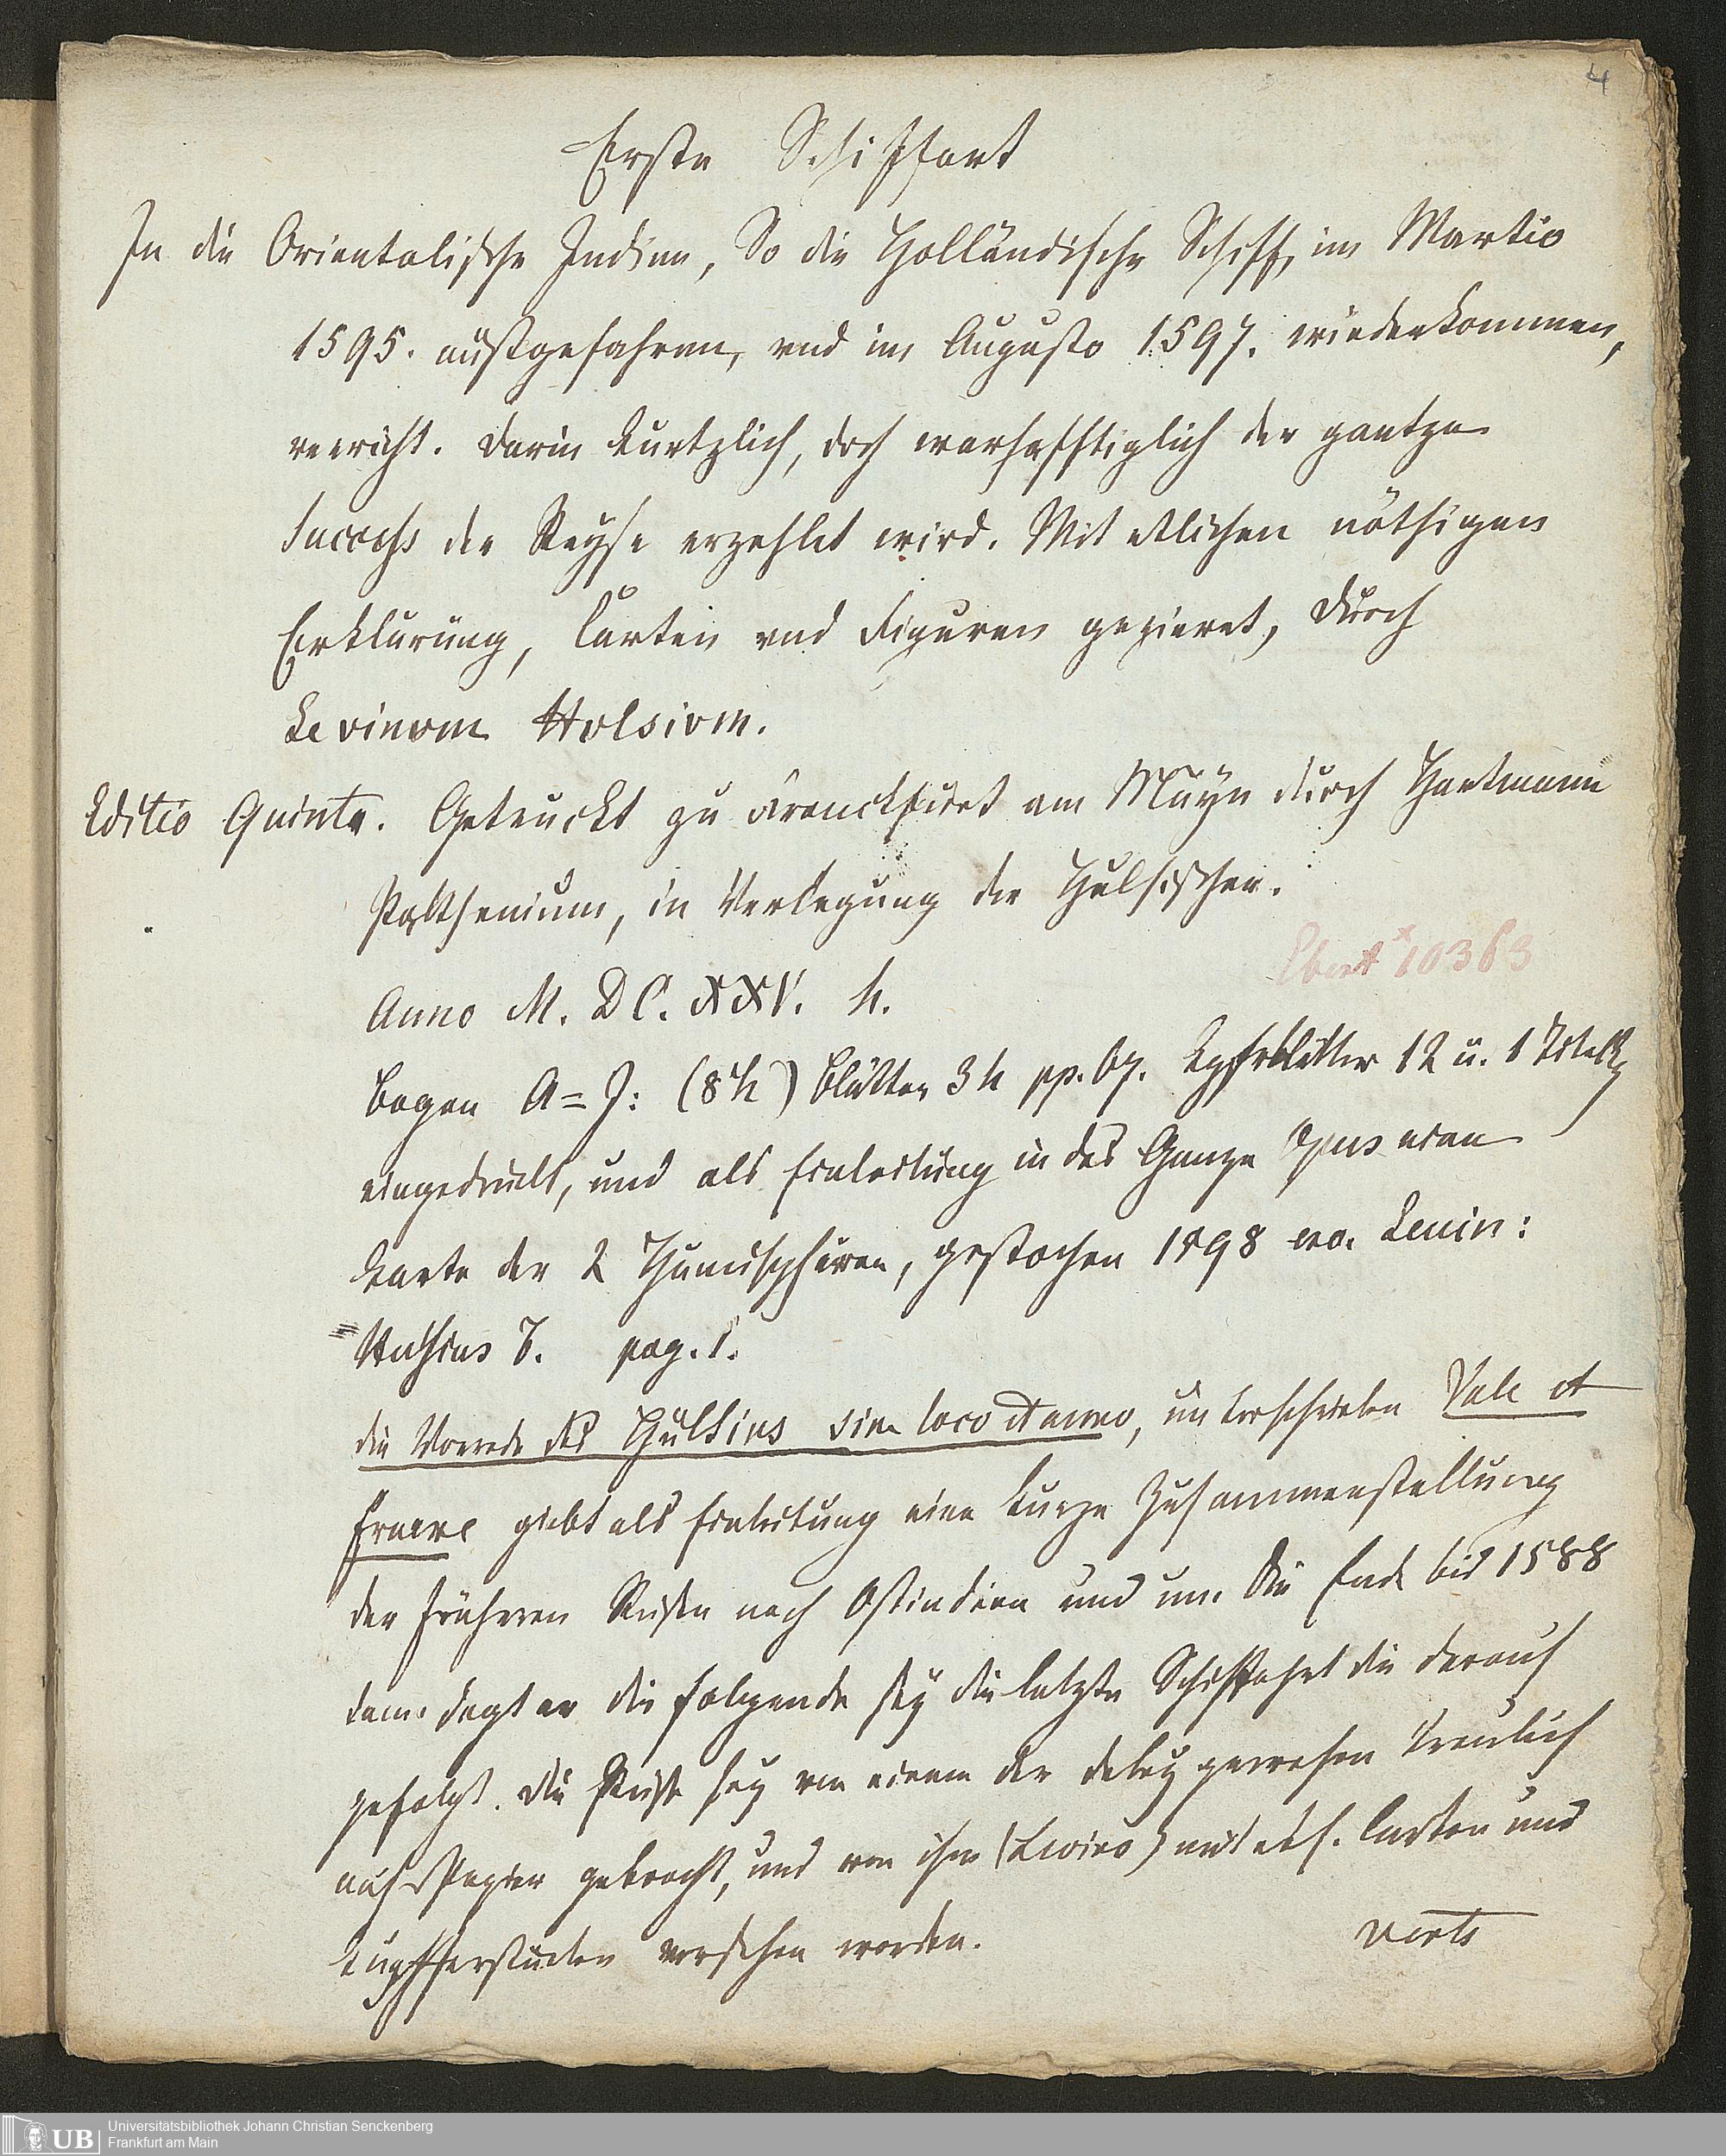 4
Erste Schiffart
In die Orientalische Indien, So die Holländische Schiff, im Martio
1595. außgefahren, vnd im Augusto 1597. wiederkommen,
verricht. Darin kurtzlich, doch warhafftiglich der gantze
Success der Reyse erzehlet wird. Mit etlichen nöthigen
Erklärung, Carten vnd Figuren gezieret, Durch
Levinvm Hvlsivm.
Editio Quinta. Getruckt zu Franckfurt am Mayn durch Hartmann
Palthenium, in Verlegung der Hulsischen.
Ebert 10363
Anno M. DC. XXV. 4.
Bogen A=J: (8 4) Blätter 34 pp. 67. Kpfrblätter 12 u. 1 Titelk
eingedruckt, und als Einleitung in das Ganze Opus eine
Karte der 2 Hemisphären, gestochen 1598 Levin:
Hulsius pag. 1.
die Vorrede des Hulsius sine loco et anno, unterschrieben Vale et
Fruere giebt als Einleitung eine kurze Zusammenstellung
der früheren Reisen nach Ostindien und um die Erde bis 1588
dann sagt er die folgende sey die letzte Schiffahrt die darauf
gefolgt. Die Reise sey von einem der dabey gewesen treulich
auf Papier gebracht, und von ihm (Levino) mit etl. Carten und
Kupfferstucken versehen worden.
verte
Universitätsbibliothek Johann Christian Senckenberg
UB Frankfurt am Main